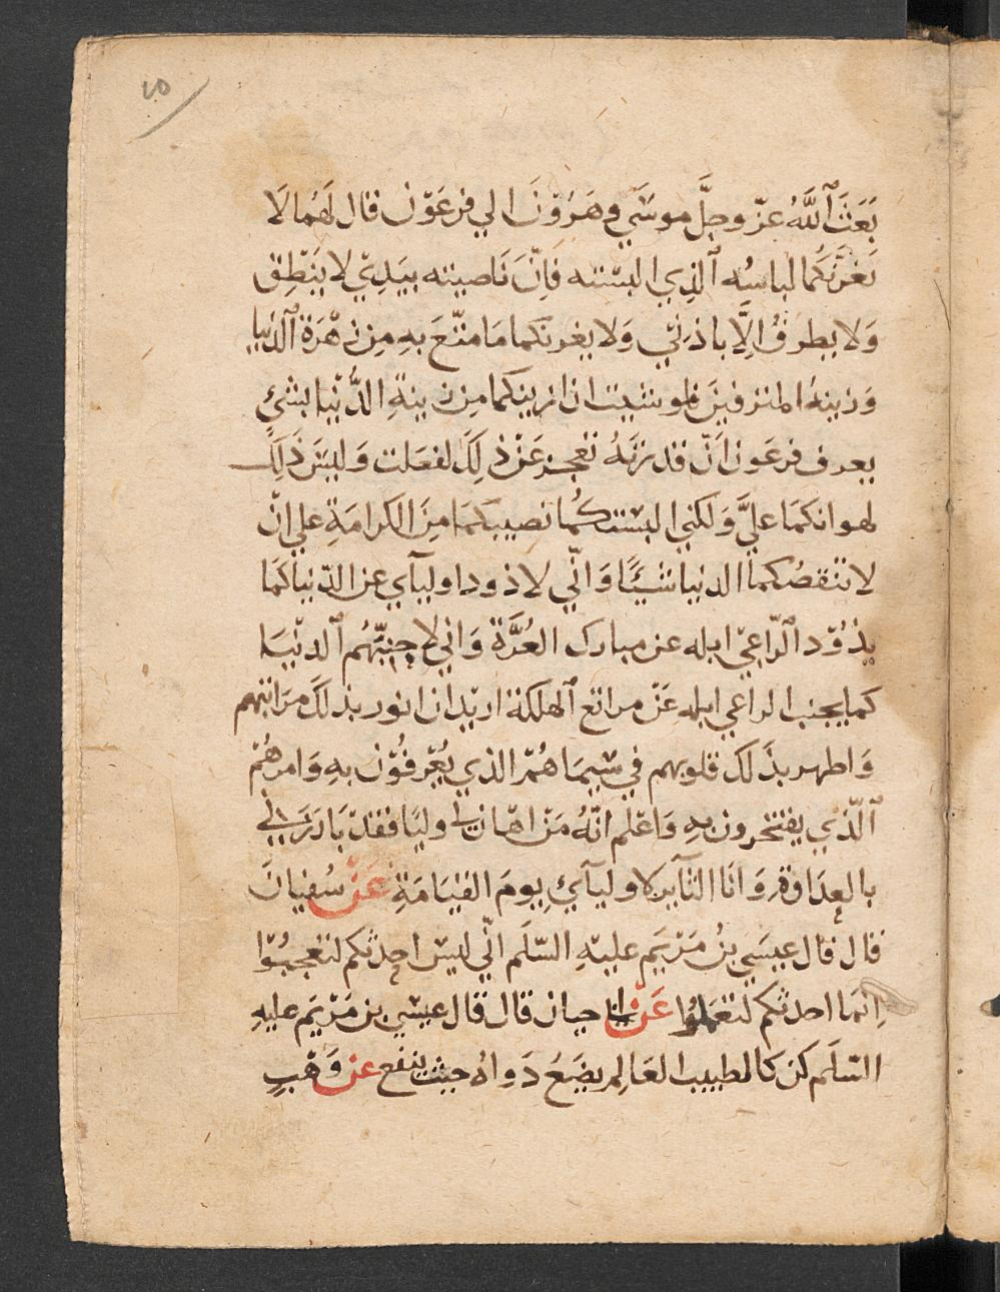 ٢٥
بَعَثَ ٱللَّهُ عزّ وجلَّ موسَي وهَرُوْنَ الي فرعَوْن قال لَهُما لَا
يَغرنكُما لباسُه ٱلذِي البسْته فَاِنّ نَاصيته بيَدِيْ لا يَنْطِق
وَلا يطرفُ اِلَّا باذنيْ وَلا يغرنكما مَا متّعَ بهِ مِن زهْرَة ٱلدنيا
وَزينة المترفينَ فلو شئت ان ازينكما مِن زينةِ الدُّنْيا بشئٍ
يعرف فرعَون اَنّ قدرتَهُ تعجز عَنْ ذلِكَ لفعَلت وَليسَ ذَلِكَ
لهوانكمَا عليَّ وَلكني البستكُما نصيبكمَا مِنَ الكرامَةِ علي انّ
لا تنْقصُكما الدنيا شيْئًا وَانّي لاذود اوليآي عن الدّنيا كَما
يذُوْد ٱلرّاعيْ ابله عن مبارك العُرَّة وَاني لاجنِّبهُم ٱلدنْيَا
كما يجنب الراعي ابله عَنْ مراتع ٱلهلكة اريْد ان انور بذلكَ مرَاتبهم
وَاطهر بذَلك قلوبهم في سيمَاهُمْ الذي يُعْرفُوْن بهِ وَامرهُمْ
ٱلّذي يفتخرون بهِ وَاعْلم انّهُ مَنْ اهَان لي وليًا فقدْ بَادرَني
بالعدَاوةِ وَانا الثآير لاوليآئِ يومَ القيَامَةِ عَنْ سُفيانَ
قال قال عيسَي بنُ مَرْيَم عليْهِ السّلَم انّي ليْس احدثكم لتعجبُوْا
اِنّمَا احدثكم لتعْمَلُوا عَنْ حيان قال قال عيسْي بن مَرْيَم عليهِ
السّلَم كن كالطبيب العَالِم يضَعُ دَواهُ حيث ينفع عن وَهْبٍ